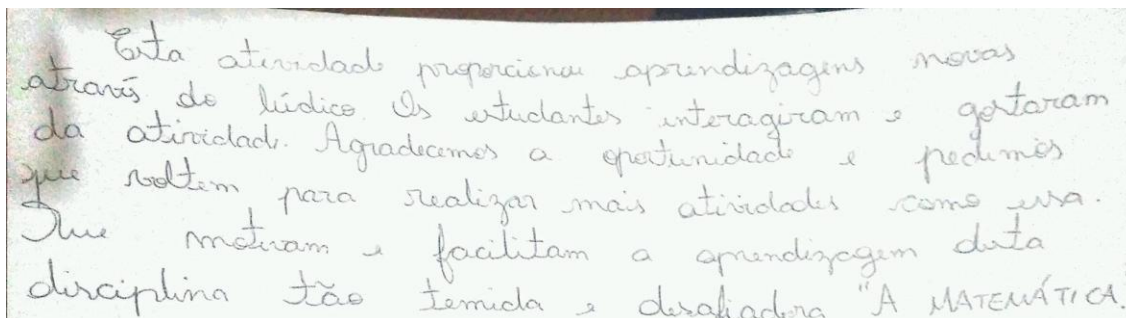 Esta atividade proporcionou aprendizagens novas
através do lúdico. Os estudantes interagiram e gostaram
da atividade. Agradecemos a oportunidade e pedimos
que voltem para realizar mais atividades como essa.
Que motivam e facilitam a aprendizagem desta
disciplina tão temida e desafiadora "A MATEMÁTICA.